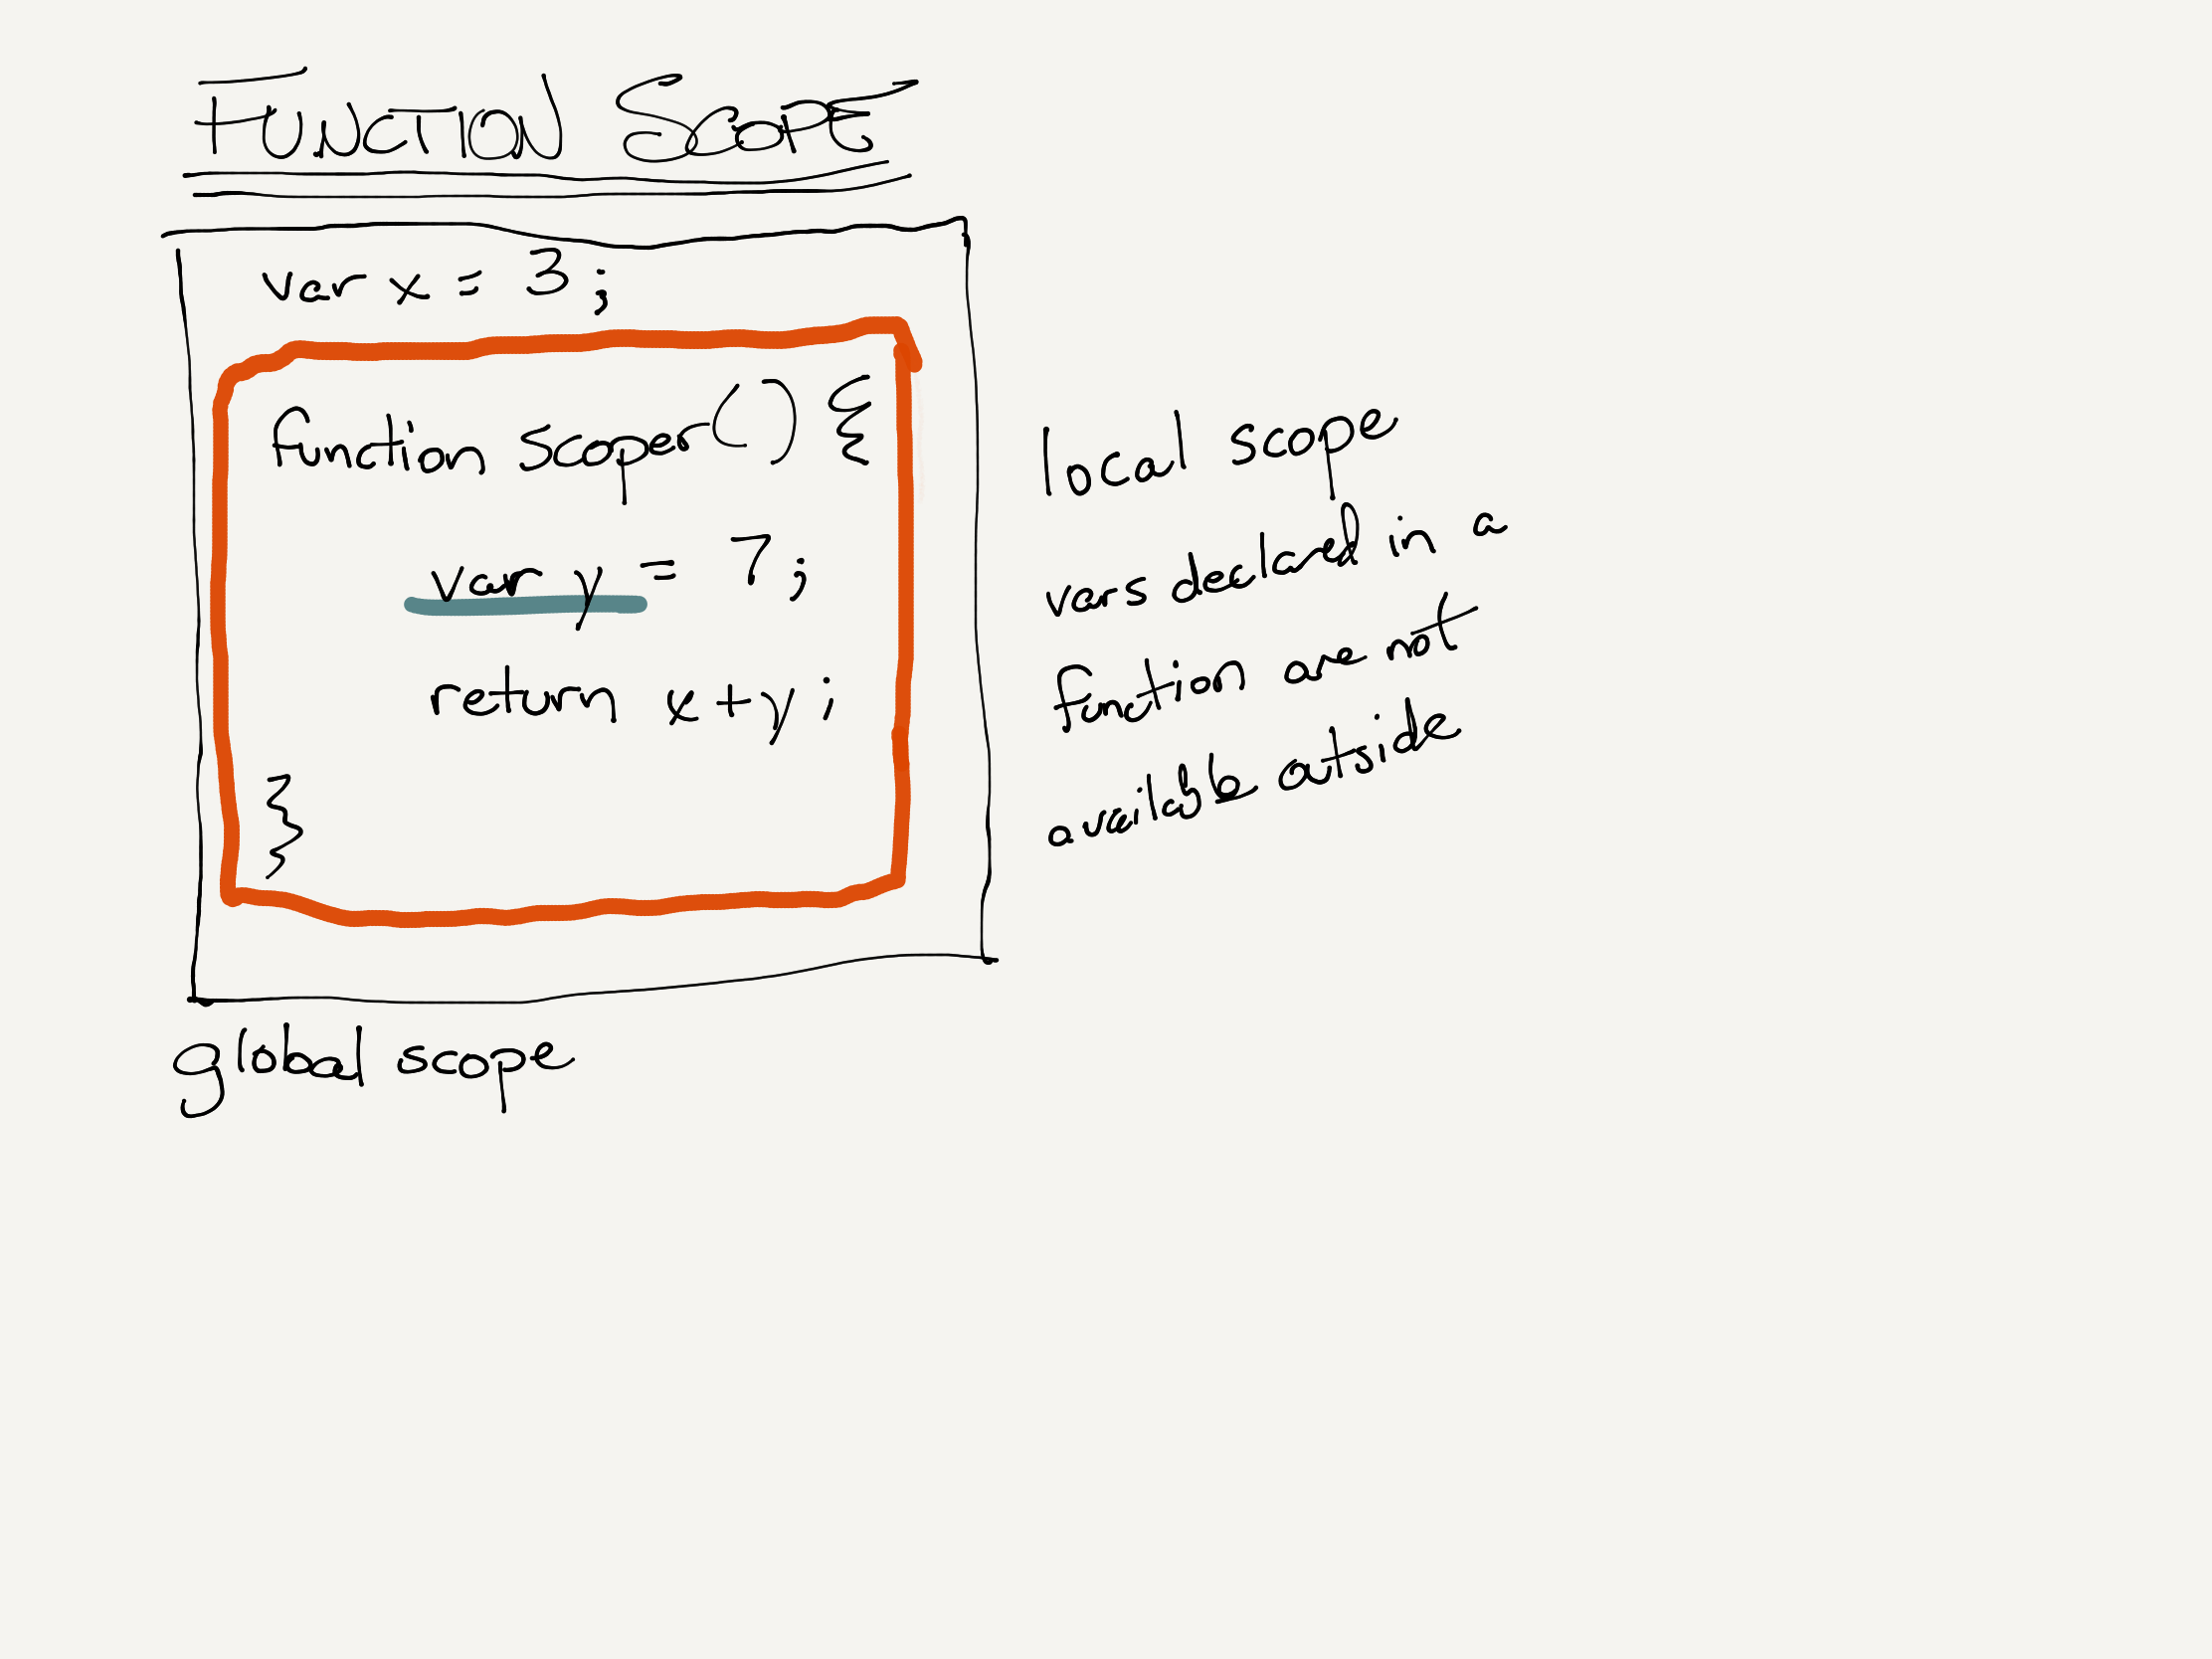 FUNCTION SCOPE
var x = 3;
function scoper() {
var y = 7;
return x + y;
}
local scope
vars declared in a
function are not
available outside
global scope